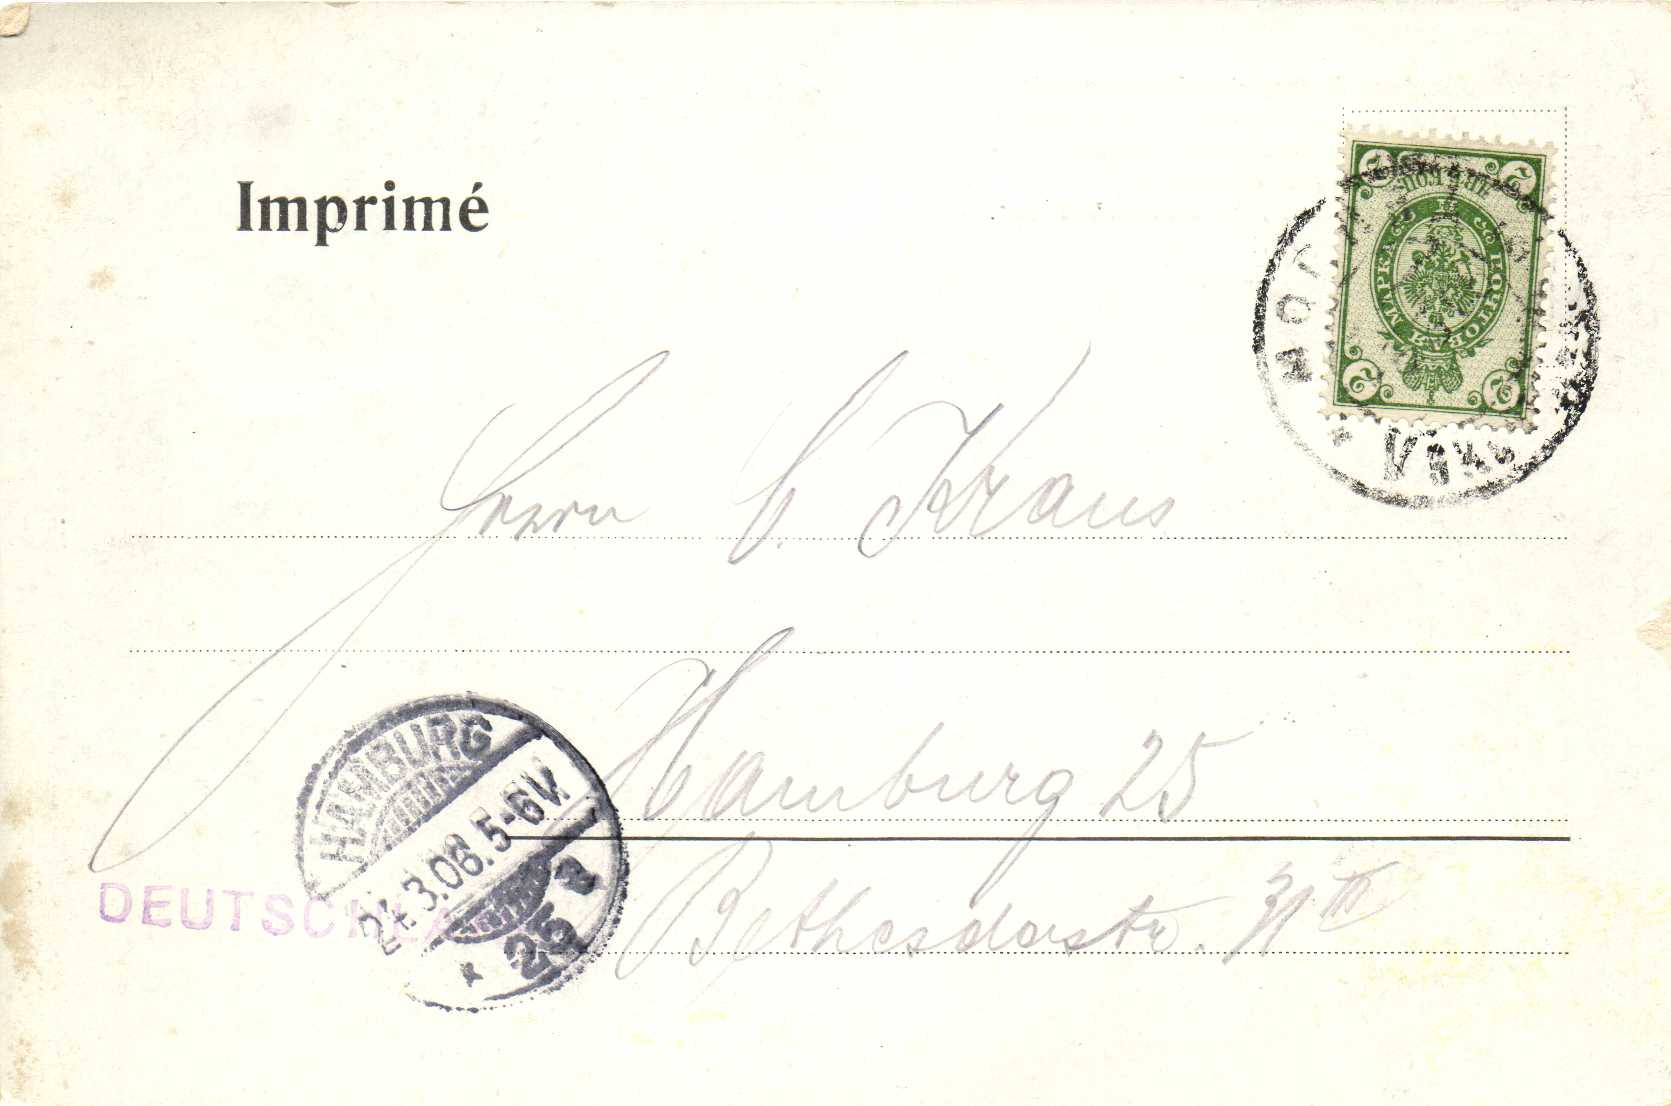 Imprimé
2 2
ПОЧТОВАЯ МАРКА
2 2
Herrn C. Kraus
Hamburg 25
Bethesdastr. 31 III
HAMBURG
24.3.06.5-6V.
* 25 e
DEUTSCHLA